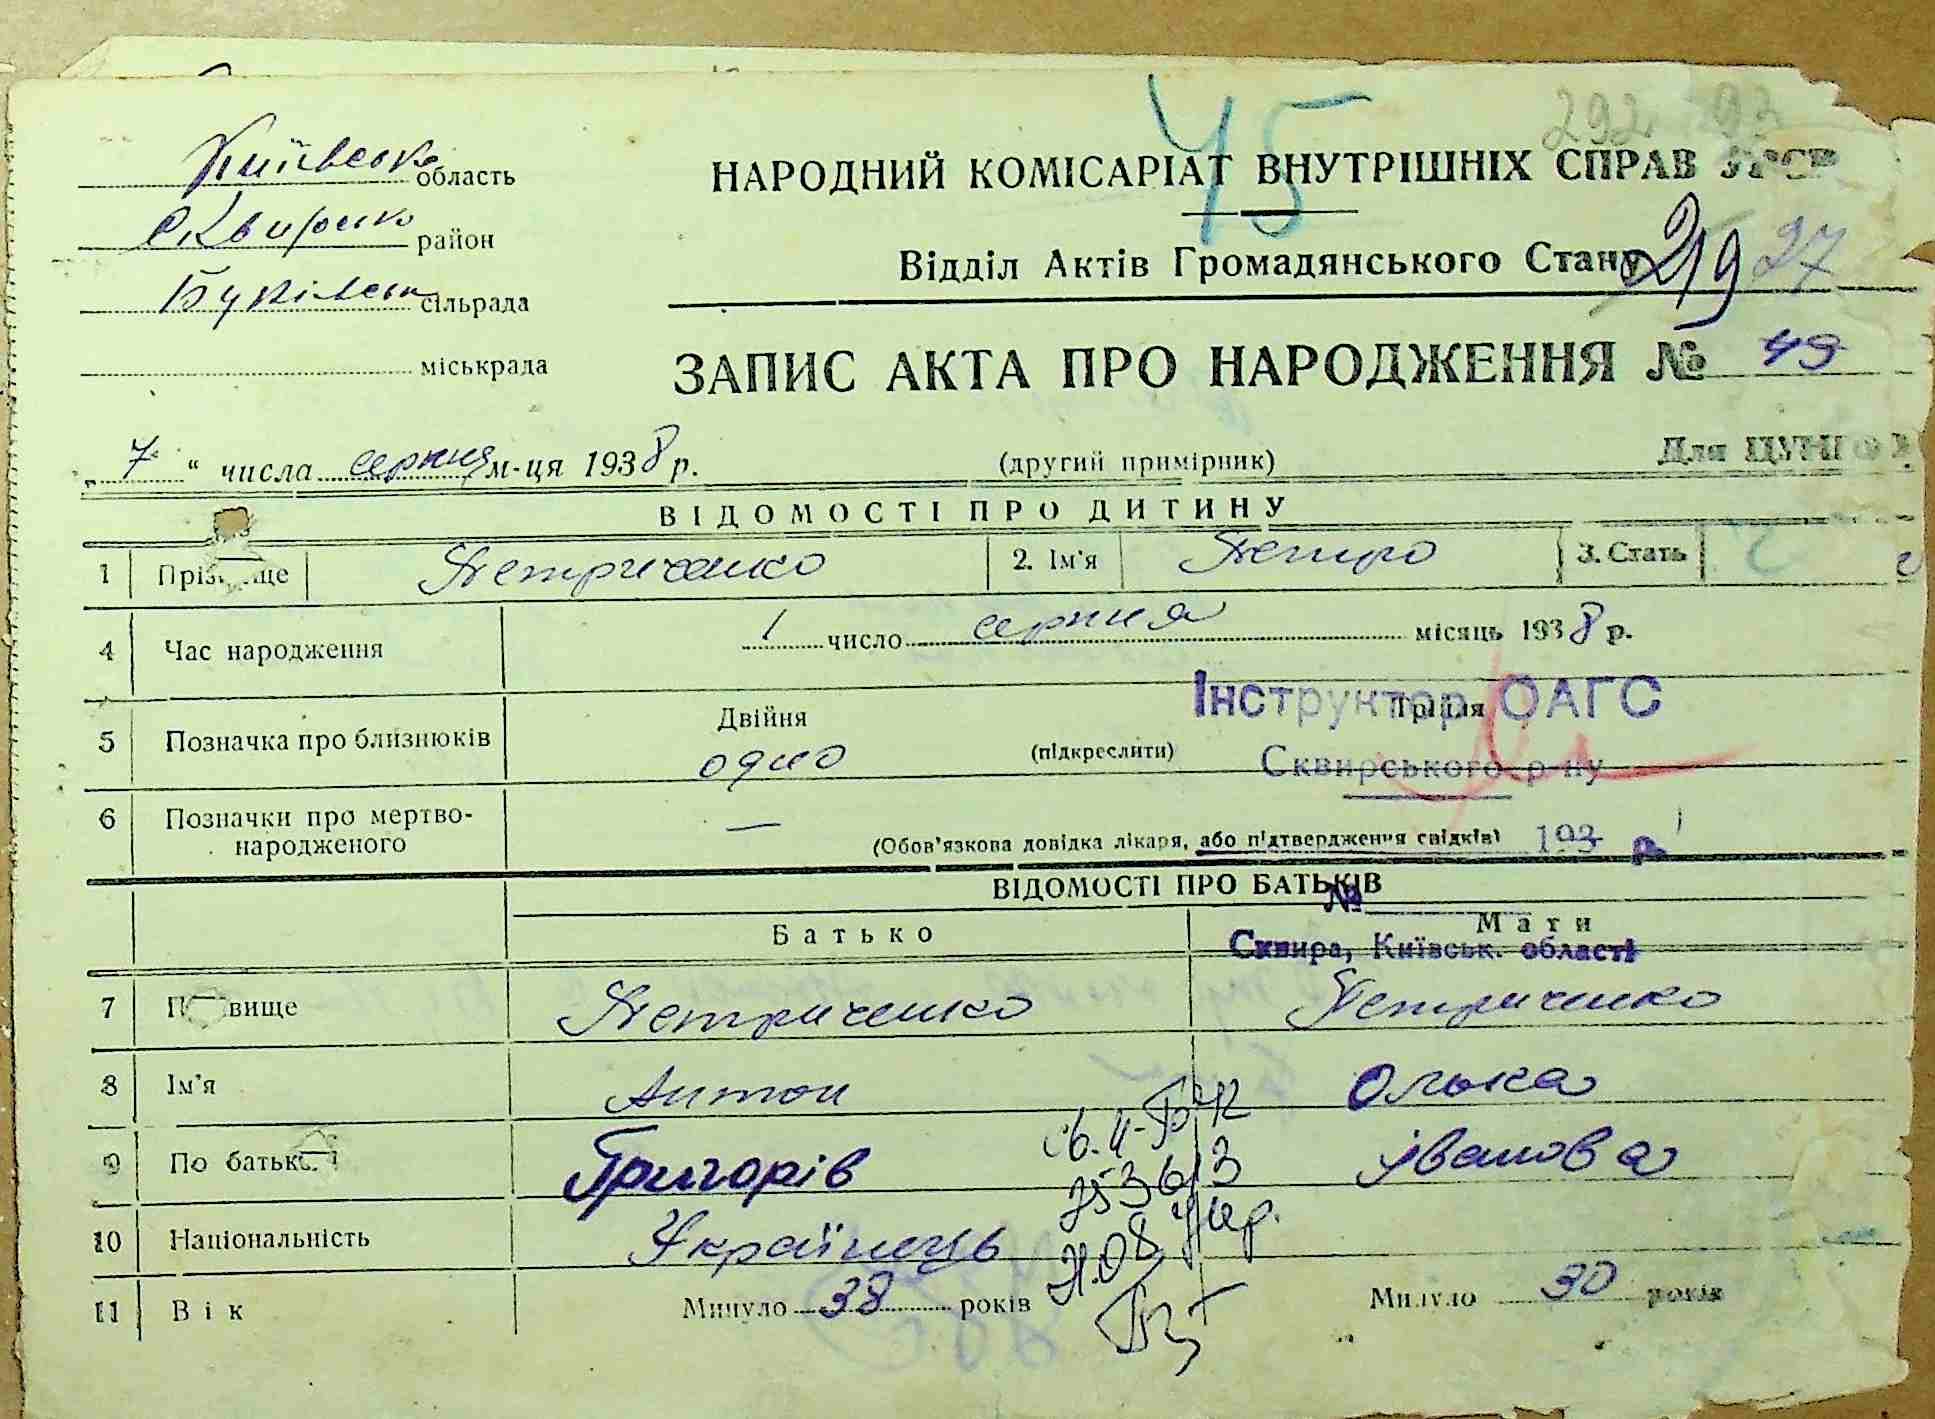 Київська область
Сквирсько район
сільрада
міськрада
НАРОДНИЙ КОМІСАРІАТ ВНУТРІШНІХ СПРАВ УРСР
Відділ Актів Громадянського Стану
45
292 93
219 27
ЗАПИС АКТА ПРО НАРОДЖЕННЯ № 49
„7“ числа серпня м-ця 1938 р.
(другий примірник)
Для
ВІДОМОСТІ ПРО ДИТИНУ
1 Прізвище Петриченко 2. Ім'я Петро 3. Стать
4 Час народження 1 число серпня місяць 1938 р.
5 Позначка про близнюків Двійня одно (підкреслити) Трійня
Інструктор ОАГС
Сквирського р-ну
6 Позначки про мертво-
народженого — (Обов'язкова довідка лікаря, або підтвердження свідків)
193 р.
№
Сквира, Київськ. області
ВІДОМОСТІ ПРО БАТЬКІВ
Батько Мати
7 Прізвище Петриченко Петриченко
8 Ім'я Антон Олька
9 По батькові Григорів Іванова
10 Національність Українець
11 Вік Минуло 38 років Минуло 30 років